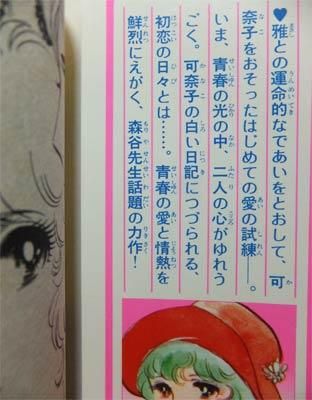 ♥雅との運命的なであいをとおして、可
奈子をおそったはじめての愛の試練──。
いま、青春の光の中、二人の心がゆれう
ごく。可奈子の白い日記につづられる、
初恋の日々とは……。青春の愛と情熱を
鮮烈にえがく、森谷先生話題の力作!